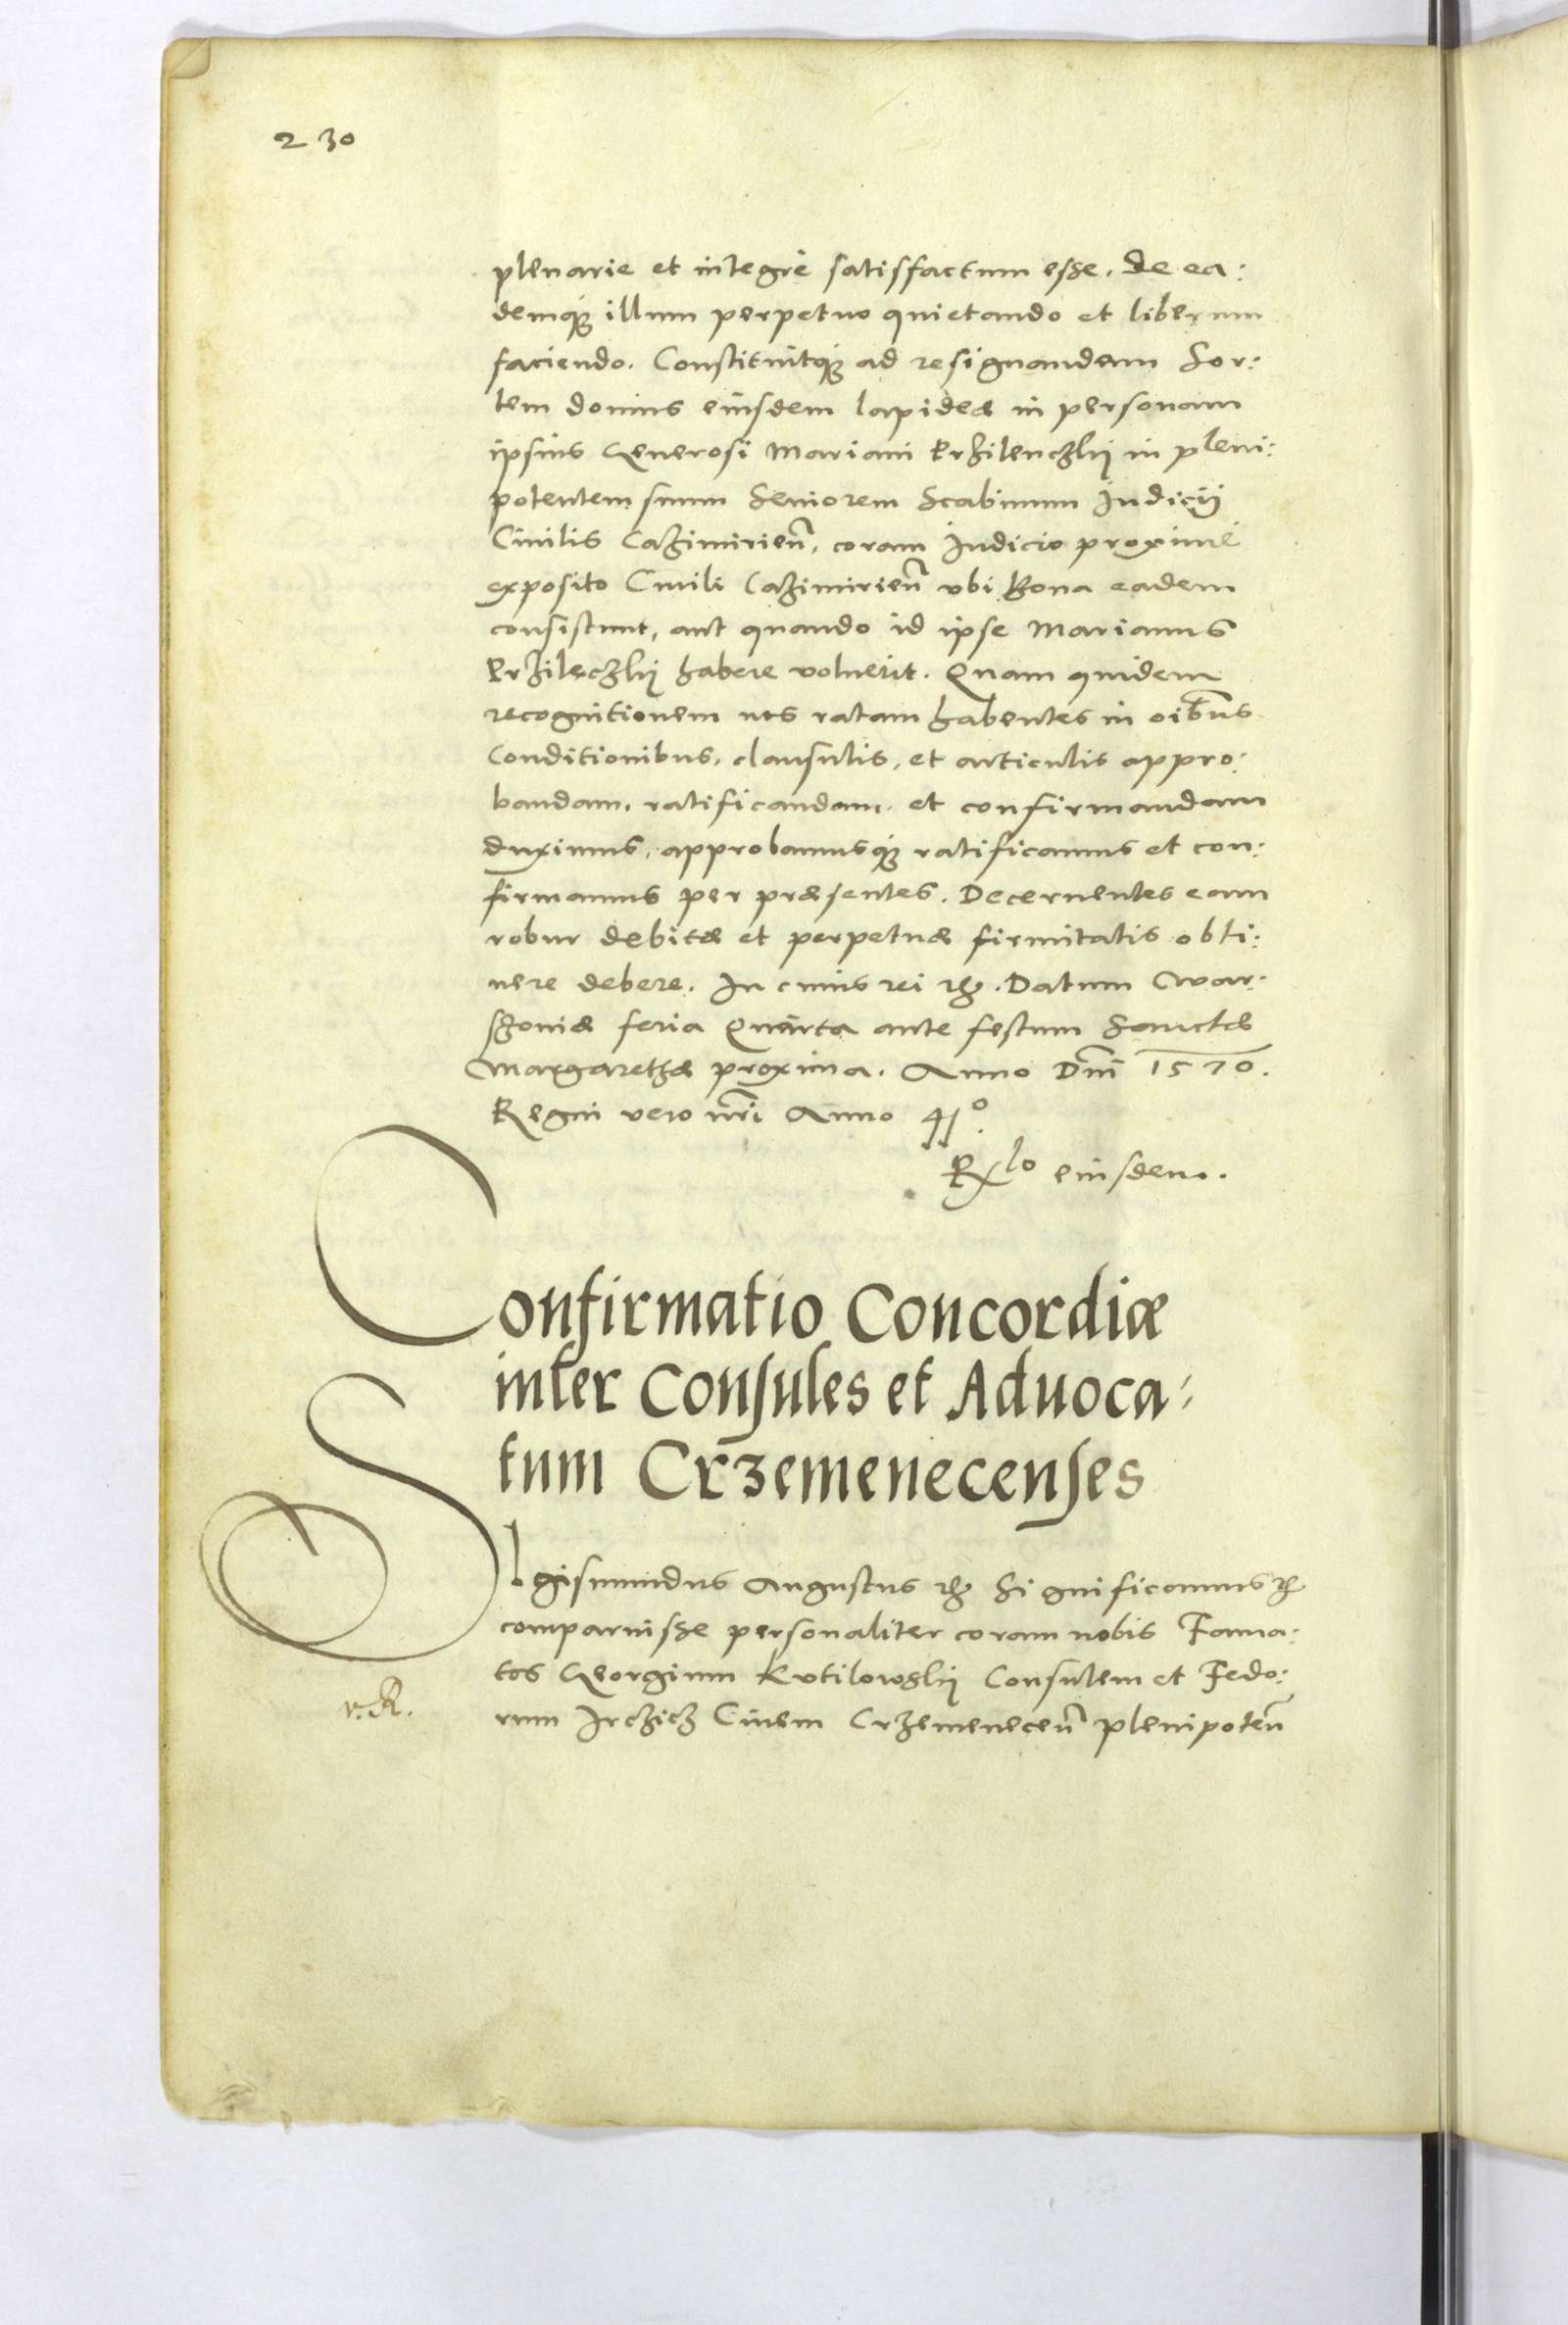 230
plenarie et integrè satisfactum esse. De ea:
demq́ illum perpetuo quietando et liberum
faciendo. Constituitq́ ad resignandam Sor:
tem domus eiusdem lapideæ in personam
ipsius Generosi Mariani Przilenczkij in pleni:
potentem suum Seniorem Scabinum Iudicij
Ciuilis Cazimirien̄. coram Iudicio proximè
exposito Ciuili Cazimirien̄ vbi Bona eadem
consistunt, aut quando id ipse Marianus
Przileczkij habere voluerit. Quam quidem
recognitionem nos ratam habentes in oībus
Conditionibus, clausulis, et articulis appro:
bandam, ratificandam et confirmandam
duximus, approbamusq́ ratificamus et con:
firmamus per præsentes. Decernentes eam
robur debitæ et perpetuæ firmitatis obti:
nere debere. In cuius rei etc. Datum War:
schouiæ feria Quarta ante festum Sanctæ
Margarethæ proxima. Anno Dnī 1570.
Regni vero nr̄i Anno 41º.
Rlo eiusdem.
Confirmatio Concordiæ
inter Consules et Aduoca:
tum Crzemenecenses
Sigismundus Augustus etc. Significamus etc.
comparuisse personaliter coram nobis Fama:
tos Georgium Kutilowskij Consulem et Fedo:
rum Irczicz Ciuem Crzemenecen̄ plenipoten̄
v. R.